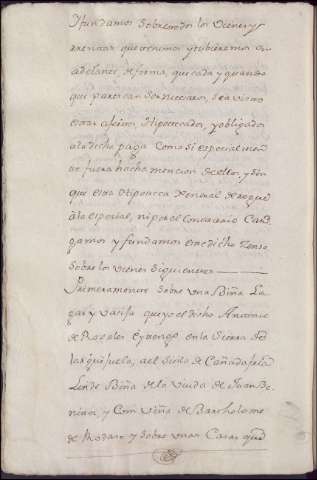 Y fundamos Sobre todos los vienes y
rrentas que tenemos y tubieremos en
adelante, de forma, que cada y quando
que parezcan ser nuestros, sea visto
estar afectos, Hipotecados, y obligados
a la dicha paga Como si especialmen
te fuera hecha mencion de ellos, y sin
que esta Hipoteca General derogue
a la especial, ni por el Contrario Car
gamos y fundamos este dicho Zenso
Sobre los vienes siguientes
Primeramente Sobre una Biña La
gar y vasija que yo el dicho Antonio
de Rosales tengo en la Sierra de
la al sitio de Cañada
Linde Biña de la viuda de Juan Be
nites, y Con Viña de Bartholome
de Rodas y Sobre unas Casas que